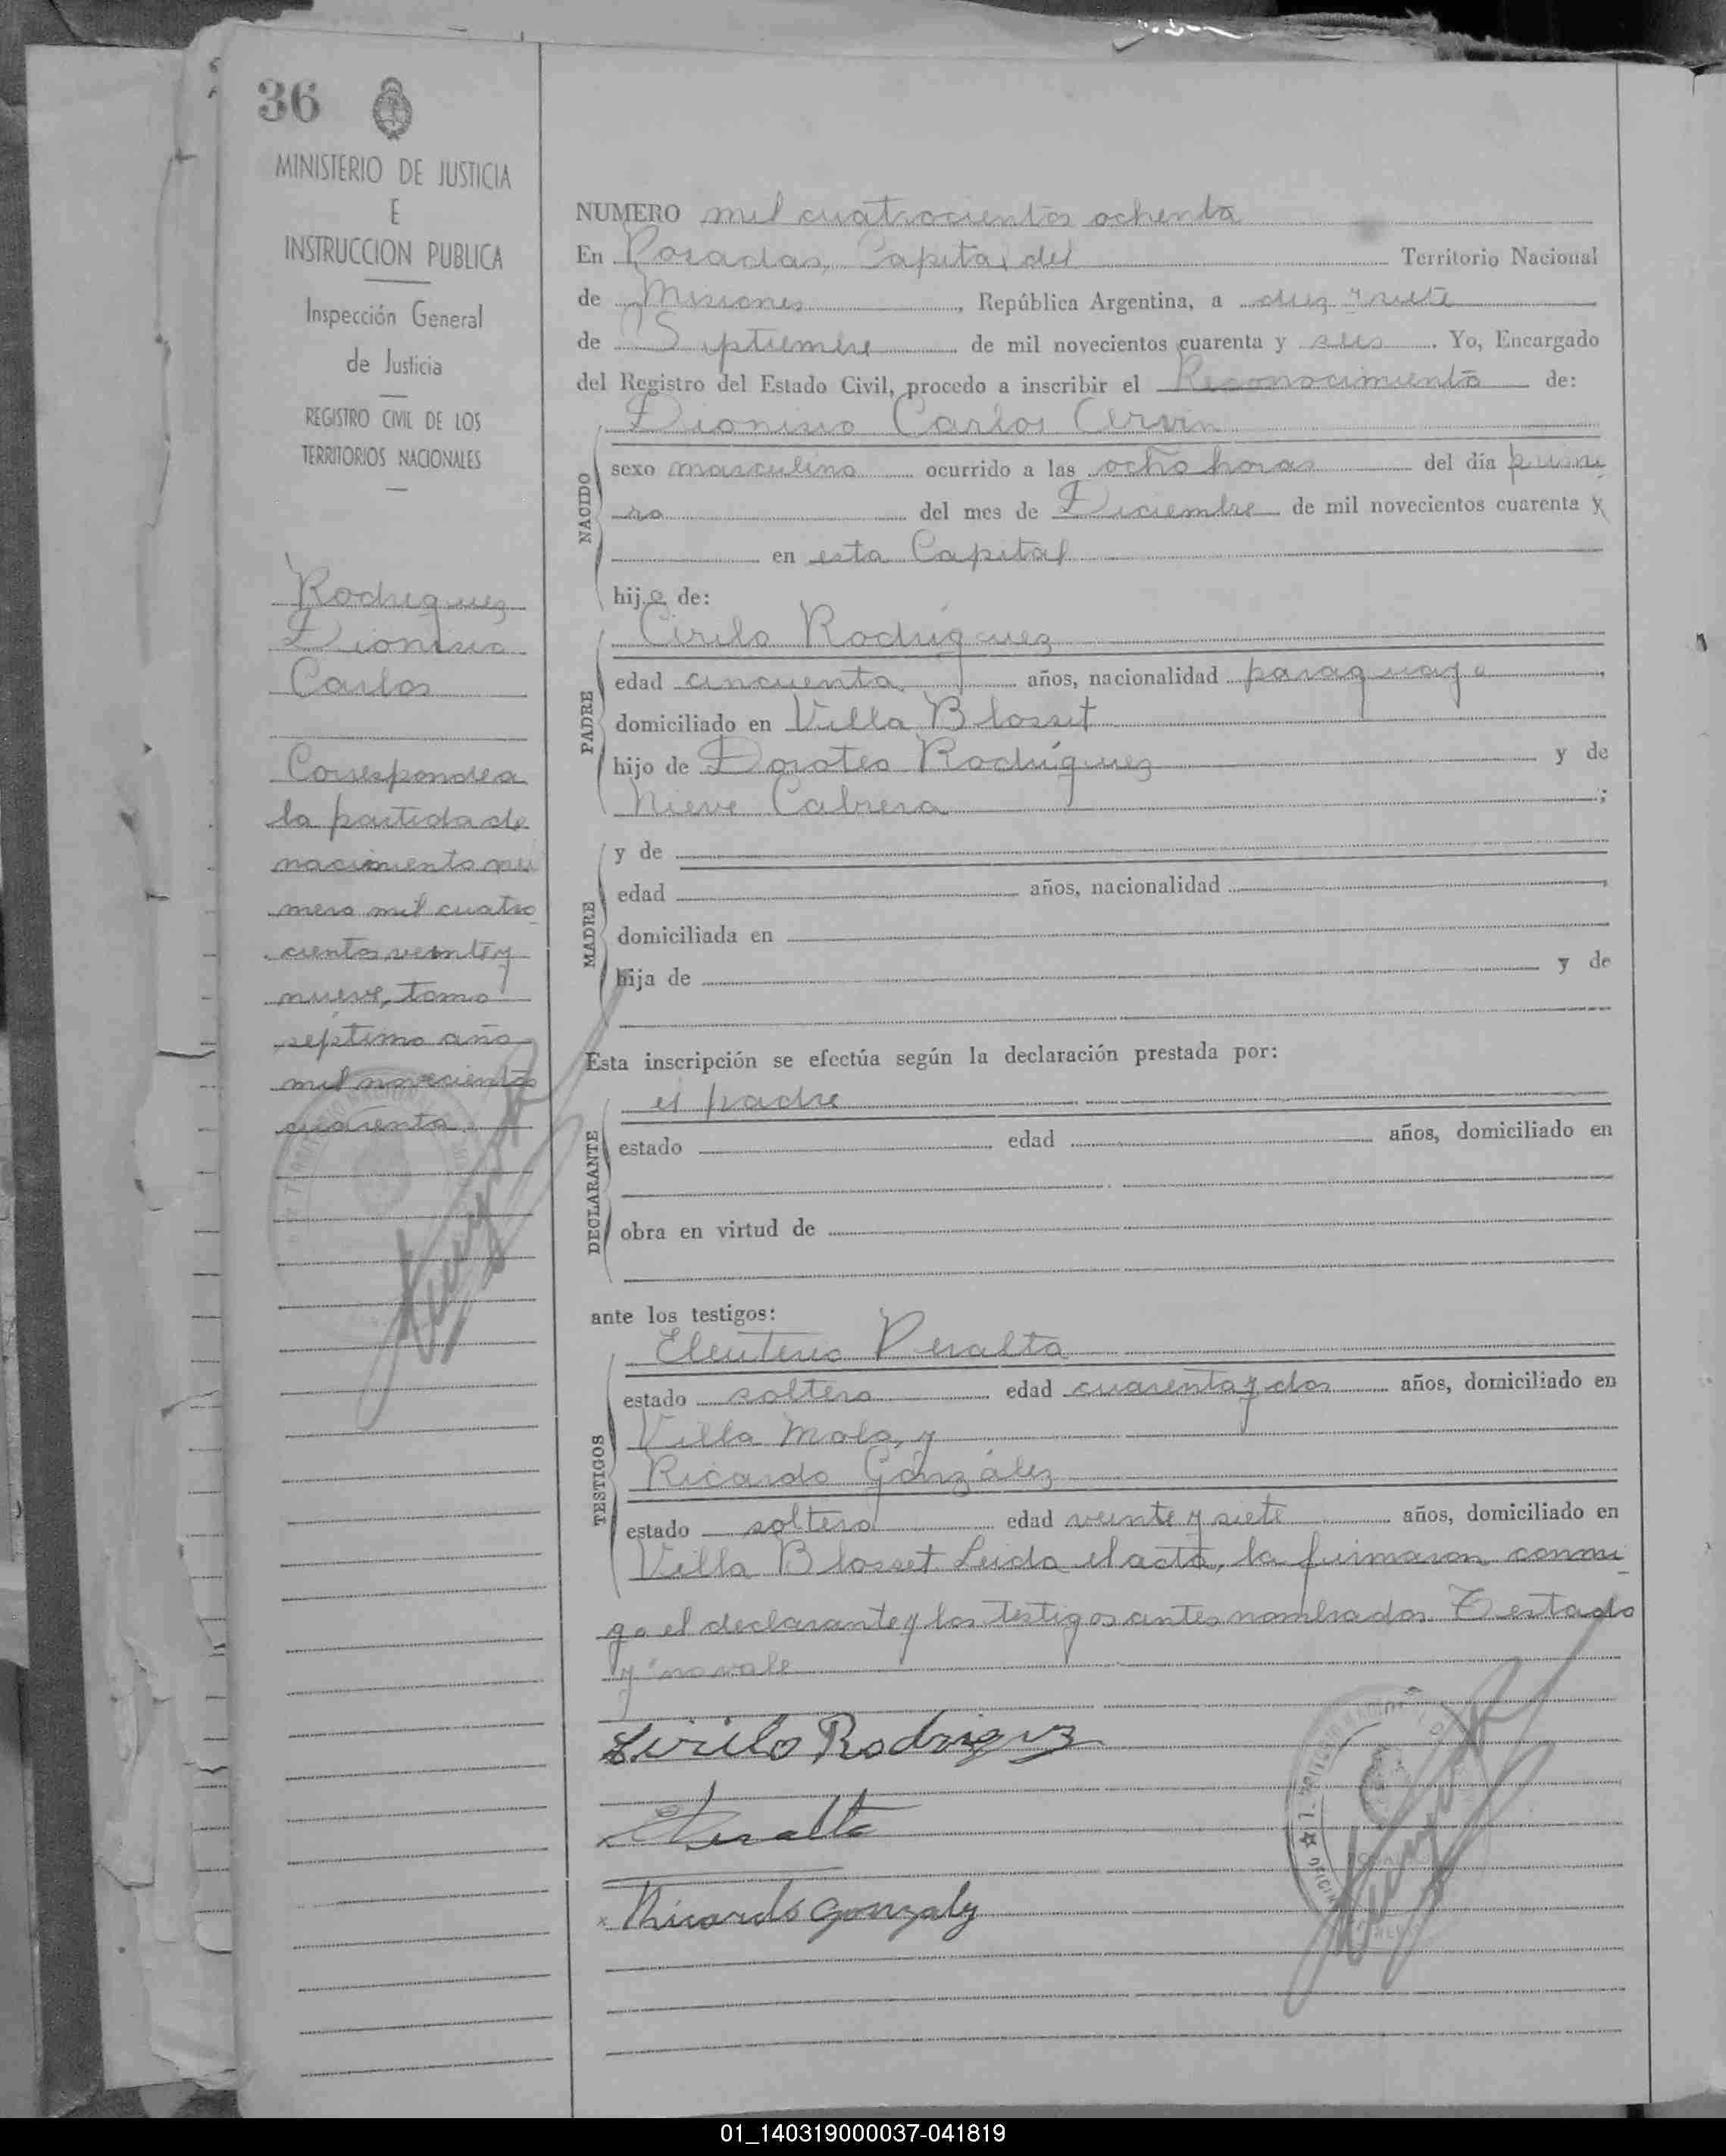 36
MINISTERIO DE JUSTICIA
E
INSTRUCCION PUBLICA
Inspección General
de Justicia
REGISTRO CIVIL DE LOS
TERRITORIOS NACIONALES
Rodriguez
Dionisio
Carlos
Corresponde a
la partida de
nacimiento nu
mero mil cuatro
cientos veinte y
nueve, tomo
séptimo año
mil novecientos
cuarenta.
NUMERO mil cuatrocientos ochenta
En Posadas, Capital del Territorio Nacional
de Misiones, República Argentina, a diez y siete
de Septiembre de mil novecientos cuarenta y seis. Yo, Encargado
del Registro del Estado Civil, procedo a inscribir el Reconocimiento de:
Dionisio Carlos
NACIDO
sexo masculino ocurrido a las ocho horas del día prime
ro del mes de Diciembre de mil novecientos cuarenta y
en esta Capital
hijo de:
PADRE
Cirilo Rodríguez
edad cincuenta años, nacionalidad paraguayo
domiciliado en Villa Blosset
hijo de Doroteo Rodríguez y de
Nieve Cabrera;
MADRE
y de
edad años, nacionalidad
domiciliada en
hija de y de
Esta inscripción se efectúa según la declaración prestada por:
DECLARANTE
el padre
estado edad años, domiciliado en
obra en virtud de
ante los testigos:
TESTIGOS
Eleuterio Peralta
estado soltero edad cuarenta y dos años, domiciliado en
Villa Mola, y
Ricardo González
estado soltero edad veinte y siete años, domiciliado en
Villa Blosset. Leida el acta, la firmaron conmi
go el declarante y los testigos antes nombrados. Testado
"y" no vale
Cirilo Rodriguz
Peralta
Ricardo Gonzalez
01_140319000037-041819